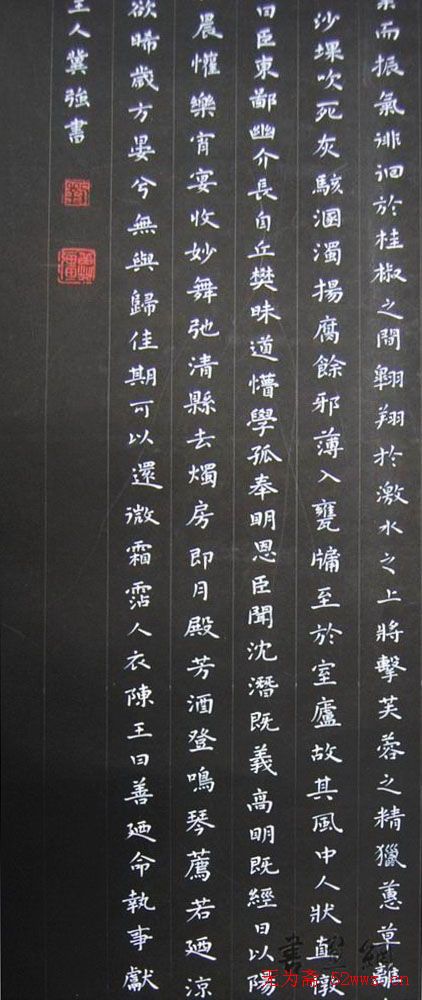 而振氣徘徊於桂椒之間翱翔於激水之上將擊芙蓉之精獵蕙草離
沙堁吹死灰駭溷濁揚腐餘邪薄入甕牖至於室廬故其風中人狀直憞
曰臣東鄙幽介長自丘樊昧道懵學孤奉明恩臣聞沈潛既義高明既經日以陽
晨懽樂宵宴收妙舞弛清縣去燭房即月殿芳酒登鳴琴薦若迺涼
欲晞歲方晏兮無與歸佳期可以還微霜霑人衣陳王曰善迺命執事獻
主人冀強書
无为斋:52wwz.cn